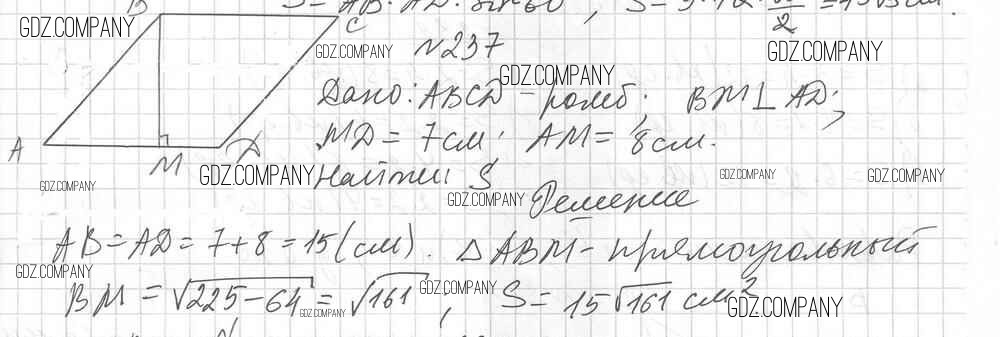 S = AB · AD · sin 60°, S =
2
B
C
A
M
D
N237
Дано: ABCD - ромб; BM ⊥ AD;
MD = 7 см; AM = 8 см.
Найти: S
Решение
AB = AD = 7 + 8 = 15 (см). Δ ABM - прямоугольный
BM = √225 - 64 = √161; S = 15√161 см²
GDZ.COMPANY
GDZ.COMPANY
GDZ.COMPANY
GDZ.COMPANY
GDZ.COMPANY
GDZ.COMPANY
GDZ.COMPANY
GDZ.COMPANY
GDZ.COMPANY
GDZ.COMPANY
GDZ.COMPANY
GDZ.COMPANY
GDZ.COMPANY